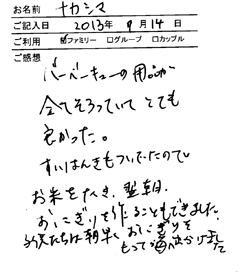 お名前 ナカシマ
ご記入日 2013年 9月14日
ご利用 ☑ファミリー □グループ □カップル
ご感想
バーベキューの用品が
全てそろっていて とても
良かった。
すいはんきもついてたので
お米をたき、翌朝、
おにぎりを作ることもできました。
朝早く おにぎりを
もって 出かけました